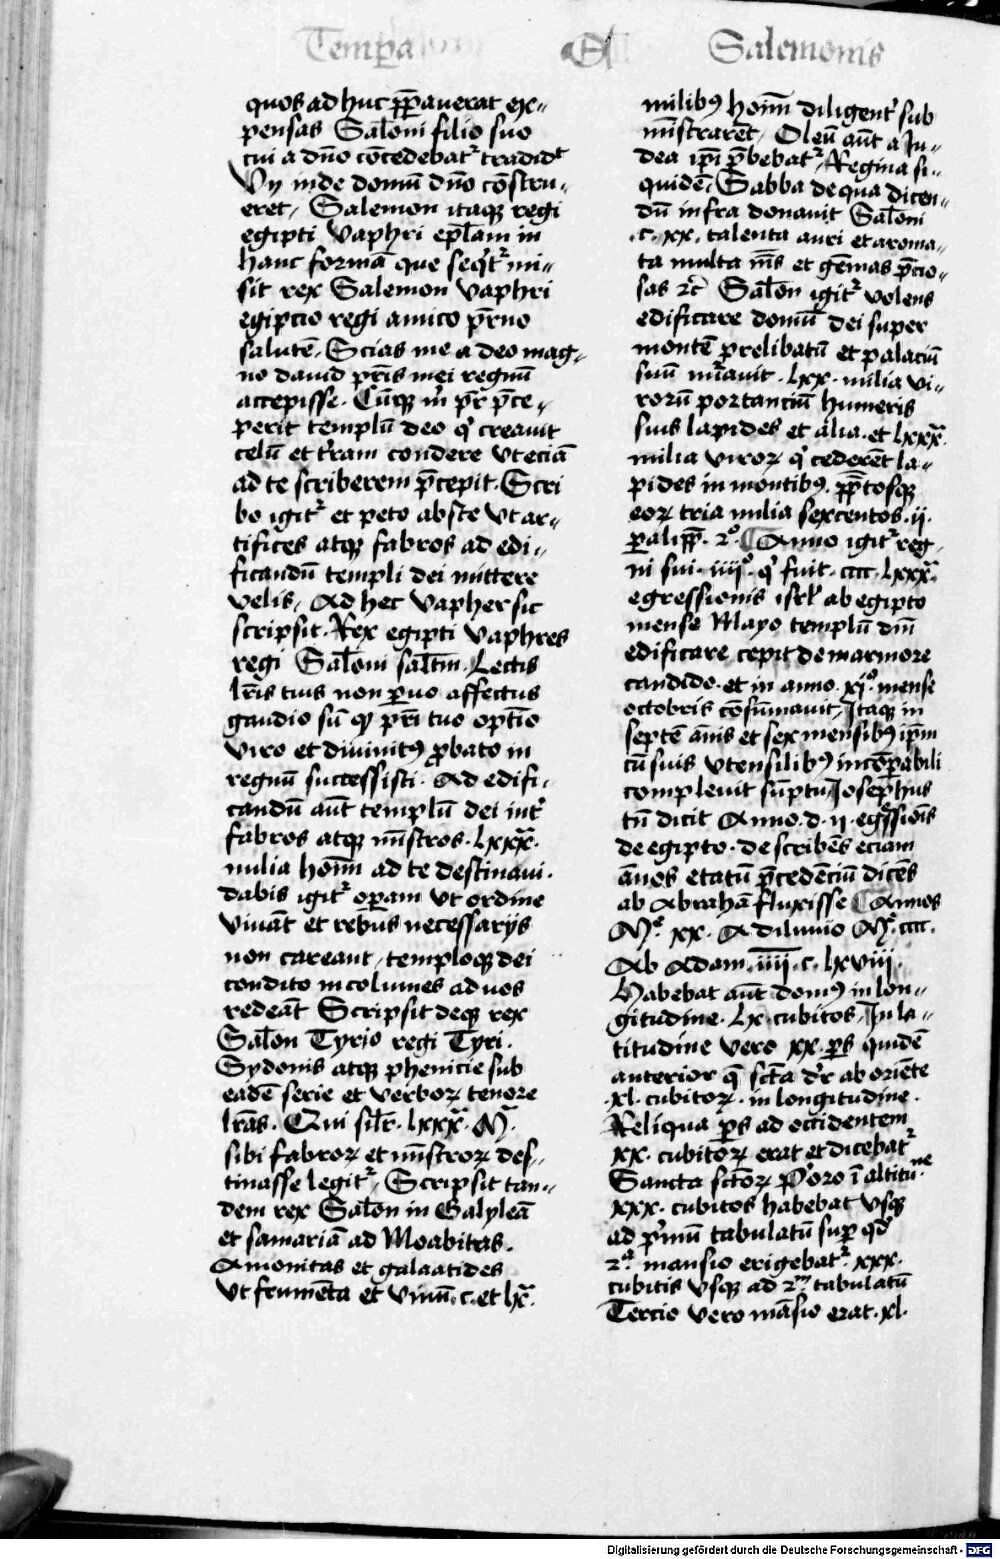 Tempora
Salemonis
quos ad huc pp̄auerat ex„
pensas Sal̄oni filio suo
cui a dn̄o cōcedebat᷑ tradidt
Vt inde domū dn̄o cōstru„
eret, Salemon itaqꝫ regi
egipti Vaphri epl̄am in
hanc formā que seqt᷑ mi„
sit rex Salemon Vaphri
egipcio regi amico pr̄no
salutē, Scias me a deo mag„
no dauid pr̄is mei regnū
accepisse. Cūqꝫ m̄ pr̄ p̄ce„
perit templū deo qͥ creauit
celū et tr̄am condere Vt eciā
ad te scriberem p̄cepit. Scri
bo igit᷑ et peto abs te Vt ar„
tifices atqꝫ fabros ad edi„
ficandū templi dei mittere
velis, Ad hec Vapher sic
scripsit. Rex egipti Vaphres
regi Sal̄oni sal̄tm. Lectis
lr̄is tuis non ꝑuo affectus
gaudio sū qꝫ pr̄i tuo optīo
viro et diuinitꝰ ꝓbato in
regnū successisti. Ad edifi„
candū aūt templū dei int᷑
fabros atqꝫ mīstros. Lxxx.
milia hoīm ad te destinaui.
dabis igit᷑ oꝑam Vt ordine
Viuāt et rebus necessarijs
non careant, temploqꝫ dei
condito incolumes ad nos
redeāt Scripsit deqꝫ rex
Sal̄on Tyrio regi Tyri.
Sydonis atqꝫ phenicie sub
eadē serie et verboꝝ tenore
lr̄as. Qui sil̄r. Lxxx. M.
sibi fabroꝝ et mīstroꝝ des„
tinasse legit᷑, Scripsit tan„
dem rex Sal̄on in Galyleā
et samariā ad Moabitas.
Amonitas et galaatides
Vt frumēta et Vinū. c. et lx.
milibꝰ hoīm diligent᷑ sub
mīstrarēt, Oleū aūt a Iu„
dea ip̄i p̄bebat᷑, Regina si„
quidē. Sabba de qua dicen„
dū infra donauit Sal̄oni
.c. xx. talenta auri et aroma„
ta multa nīs et gēmas p̄cio„
sas ꝛc̄ Sal̄on igit᷑ volens
edificare domū dei super
montē prelibatū et palaciū
suū nūauit. Lxx. milia vi„
rorū portanciū humeris
suis lapides et alia. et Lxxx.
milia viroꝝ qͥ cederēt la„
pides in montibꝰ. pp̄itosqꝫ
eoꝝ tria milia sexcentos. ii.
ꝑalipp̄. 2º. Anno igit᷑ reg„
ni sui. iiijº. qͥ fuit. cccc. Lxxx.
egressionis isrl̄ ab egipto
mense Mayo templū dn̄i
edificare cepit de marmore
candido. et in anno. xjº. mense
octobris cōsūmauit, Itaqꝫ in
septē ānis et sex mensibꝰ ip̄m
cū suis Vtensilibꝰ incōꝑabili
compleuit sūptu, Iosephus
tn̄ dicit Anno. d. ii. egr̄ssiōis
de egipto. describēs eciam
ānos etatū p̄cedēciū dicēs
ab Abrahā fluxisse Annos
Mº. xx. A diluuio Mº. cccc.
Ab Adam. iiii. c. lxviii.
Habebat aūt domꝰ in lon„
gitudine. Lx. cubitos, In la„
titudine vero xx. ꝑs quidē
anterior q̄ sctā dr̄ ab oriēte
.xl. cubitoꝝ. in longitudine.
Reliqua ꝑs ad occidentem
xx. cubitoꝝ erat et dicebat᷑
Sancta sctōꝝ Porro ī altitune
xxx. cubitos habebat vsqꝫ
ad pͥmū tabulatū suꝑ qd̄
2ª. mansio erigebat᷑. xxx.
cubitis vsqꝫ ad 2m tabulatū
Tercio vero māsio erat. xl.
Digitalisierung gefördert durch die Deutsche Forschungsgemeinschaft - DFG